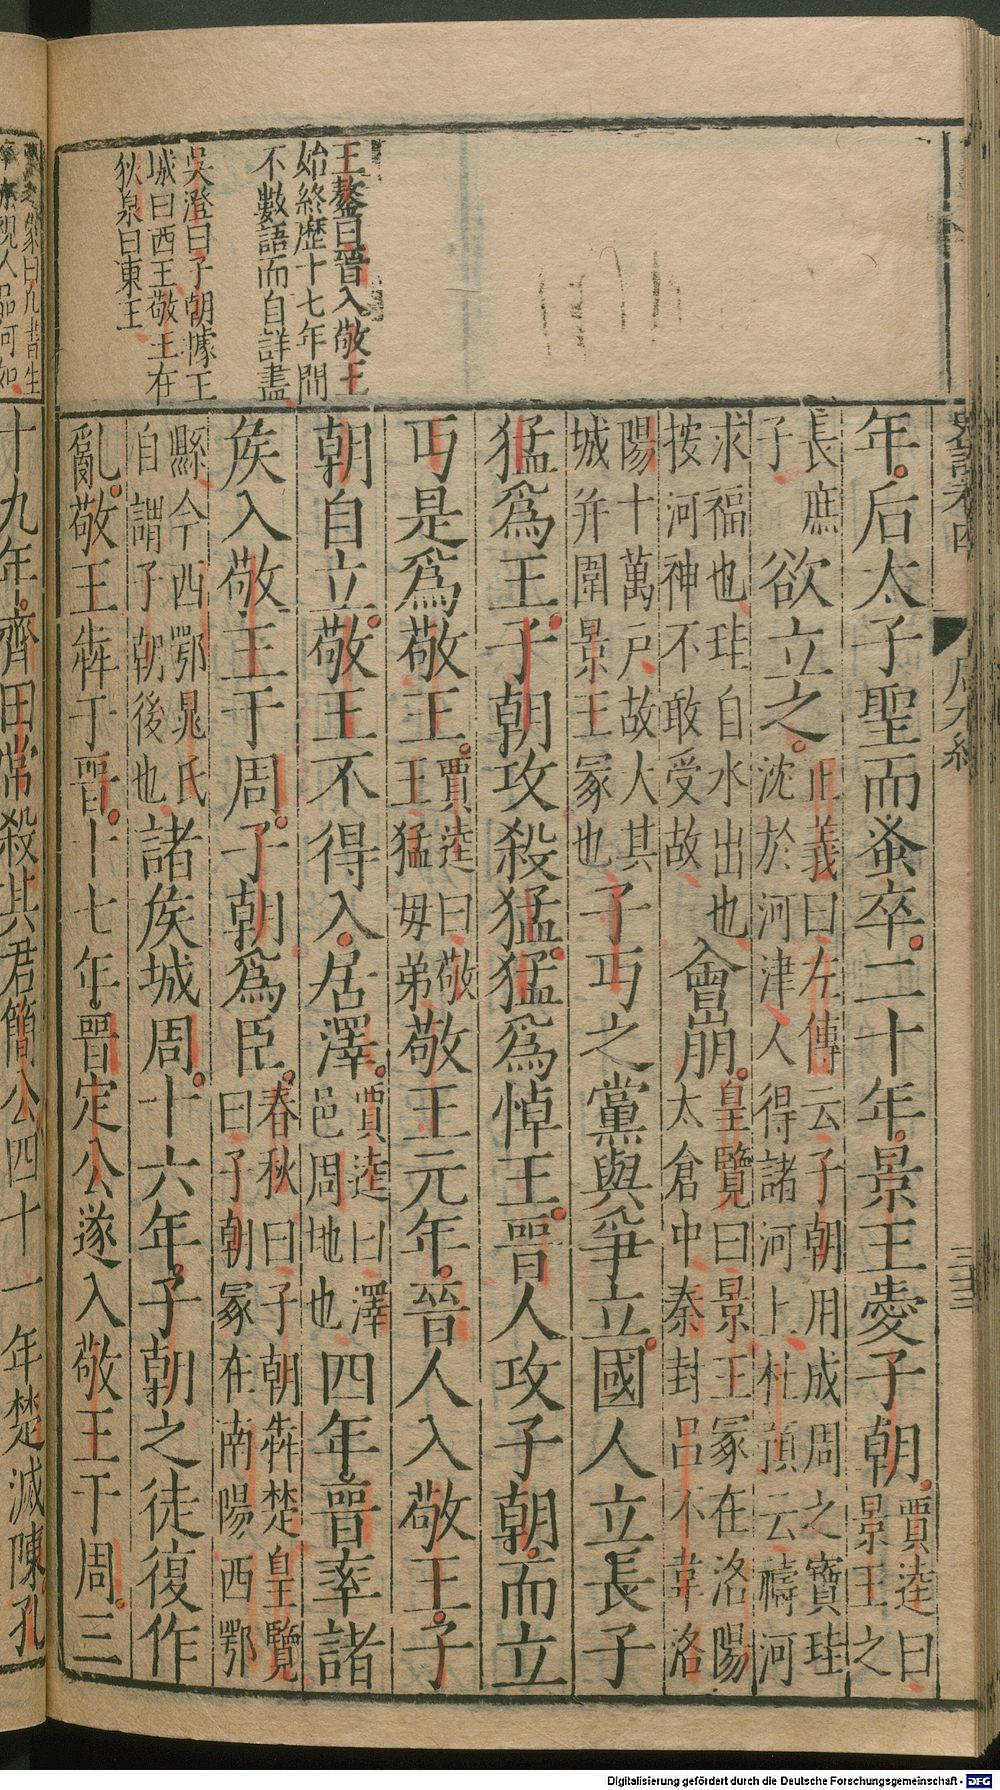 史記卷四 周本紀 三十三
王鏊曰晉入敬王
始終歷十七年間
不數語而自詳盡
吳澄曰子朝據王
城曰西王敬王在
狄泉曰東王
年后太子聖而蚤卒二十年景王愛子朝
賈逵曰
景王之
長庶
子
欲立之
正義曰左傳云子朝用成周之寶珪
沈於河津人得諸河上杜預云禱河
求福也珪自水出也
按河神不敢受故
會崩
皇覽曰景王冢在洛陽
太倉中秦封呂不韋洛
陽十萬戶故大其
城并圍景王冢也
子丐之黨與爭立國人立長子
猛爲王子朝攻殺猛猛爲悼王晉人攻子朝而立
丐是爲敬王
賈逵曰敬
王猛母弟
敬王元年晉人入敬王子
朝自立敬王不得入居澤
賈逵曰澤
邑周地也
四年晉率諸
矦入敬王于周子朝爲臣
春秋曰子朝犇楚皇覽
曰子朝冢在南陽西鄂
縣今西鄂晁氏
自謂子朝後也
諸矦城周十六年子朝之徒復作
亂敬王犇于晉十七年晉定公遂入敬王于周三
人品何如
十九年齊田常殺其君簡公四十一年楚滅陳孔
Digitalisierung gefördert durch die Deutsche Forschungsgemeinschaft - DFG